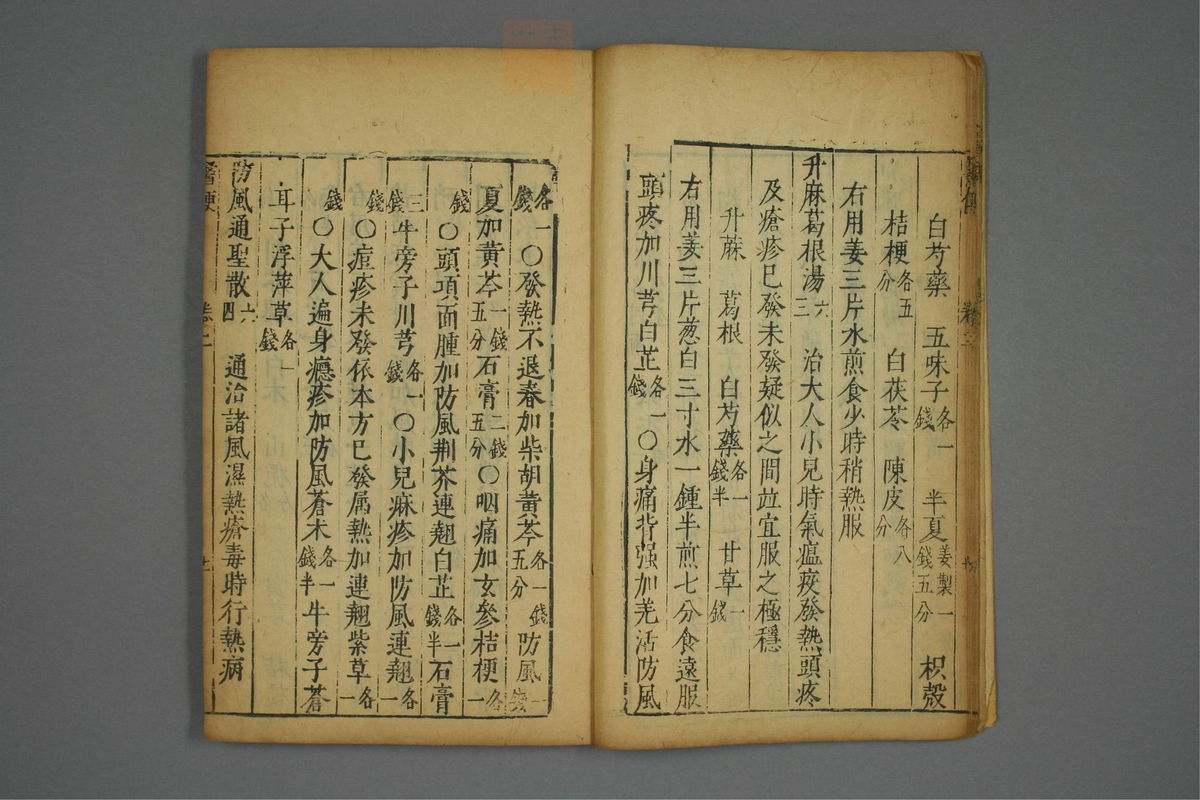 白芍藥　五味子各一錢　半夏姜製一錢五分　枳殼
桔梗各五分　白茯苓　陳皮各八分
右用姜三片水煎食少時稍熱服
升麻葛根湯六三　治大人小兒時氣瘟疫發熱頭疼
及瘡疹已發未發疑似之間並宜服之極穩
升蔴　葛根　白芍藥各一錢半　甘草一錢
右用姜三片葱白三寸水一鍾半煎七分食遠服
頭疼加川芎白芷各一錢〇身痛背强加羌活防風
各一錢〇發熱不退春加柴胡黄芩各一錢五分防風一錢
夏加黄芩一錢五分石膏二錢五分〇咽痛加玄參桔梗各一
錢〇頭項面腫加防風荆芥連翹白芷各一錢半石膏
三錢牛旁子川芎各一錢〇小兒麻疹加防風連翹各一
錢〇痘疹未發依本方已發属熱加連翹紫草各一
錢〇大人遍身癮疹加防風蒼术各一錢半牛旁子蒼
耳子浮萍草各一錢
防風通聖散六四　通治諸風濕熱瘡毒時行熱病
醫便　卷二